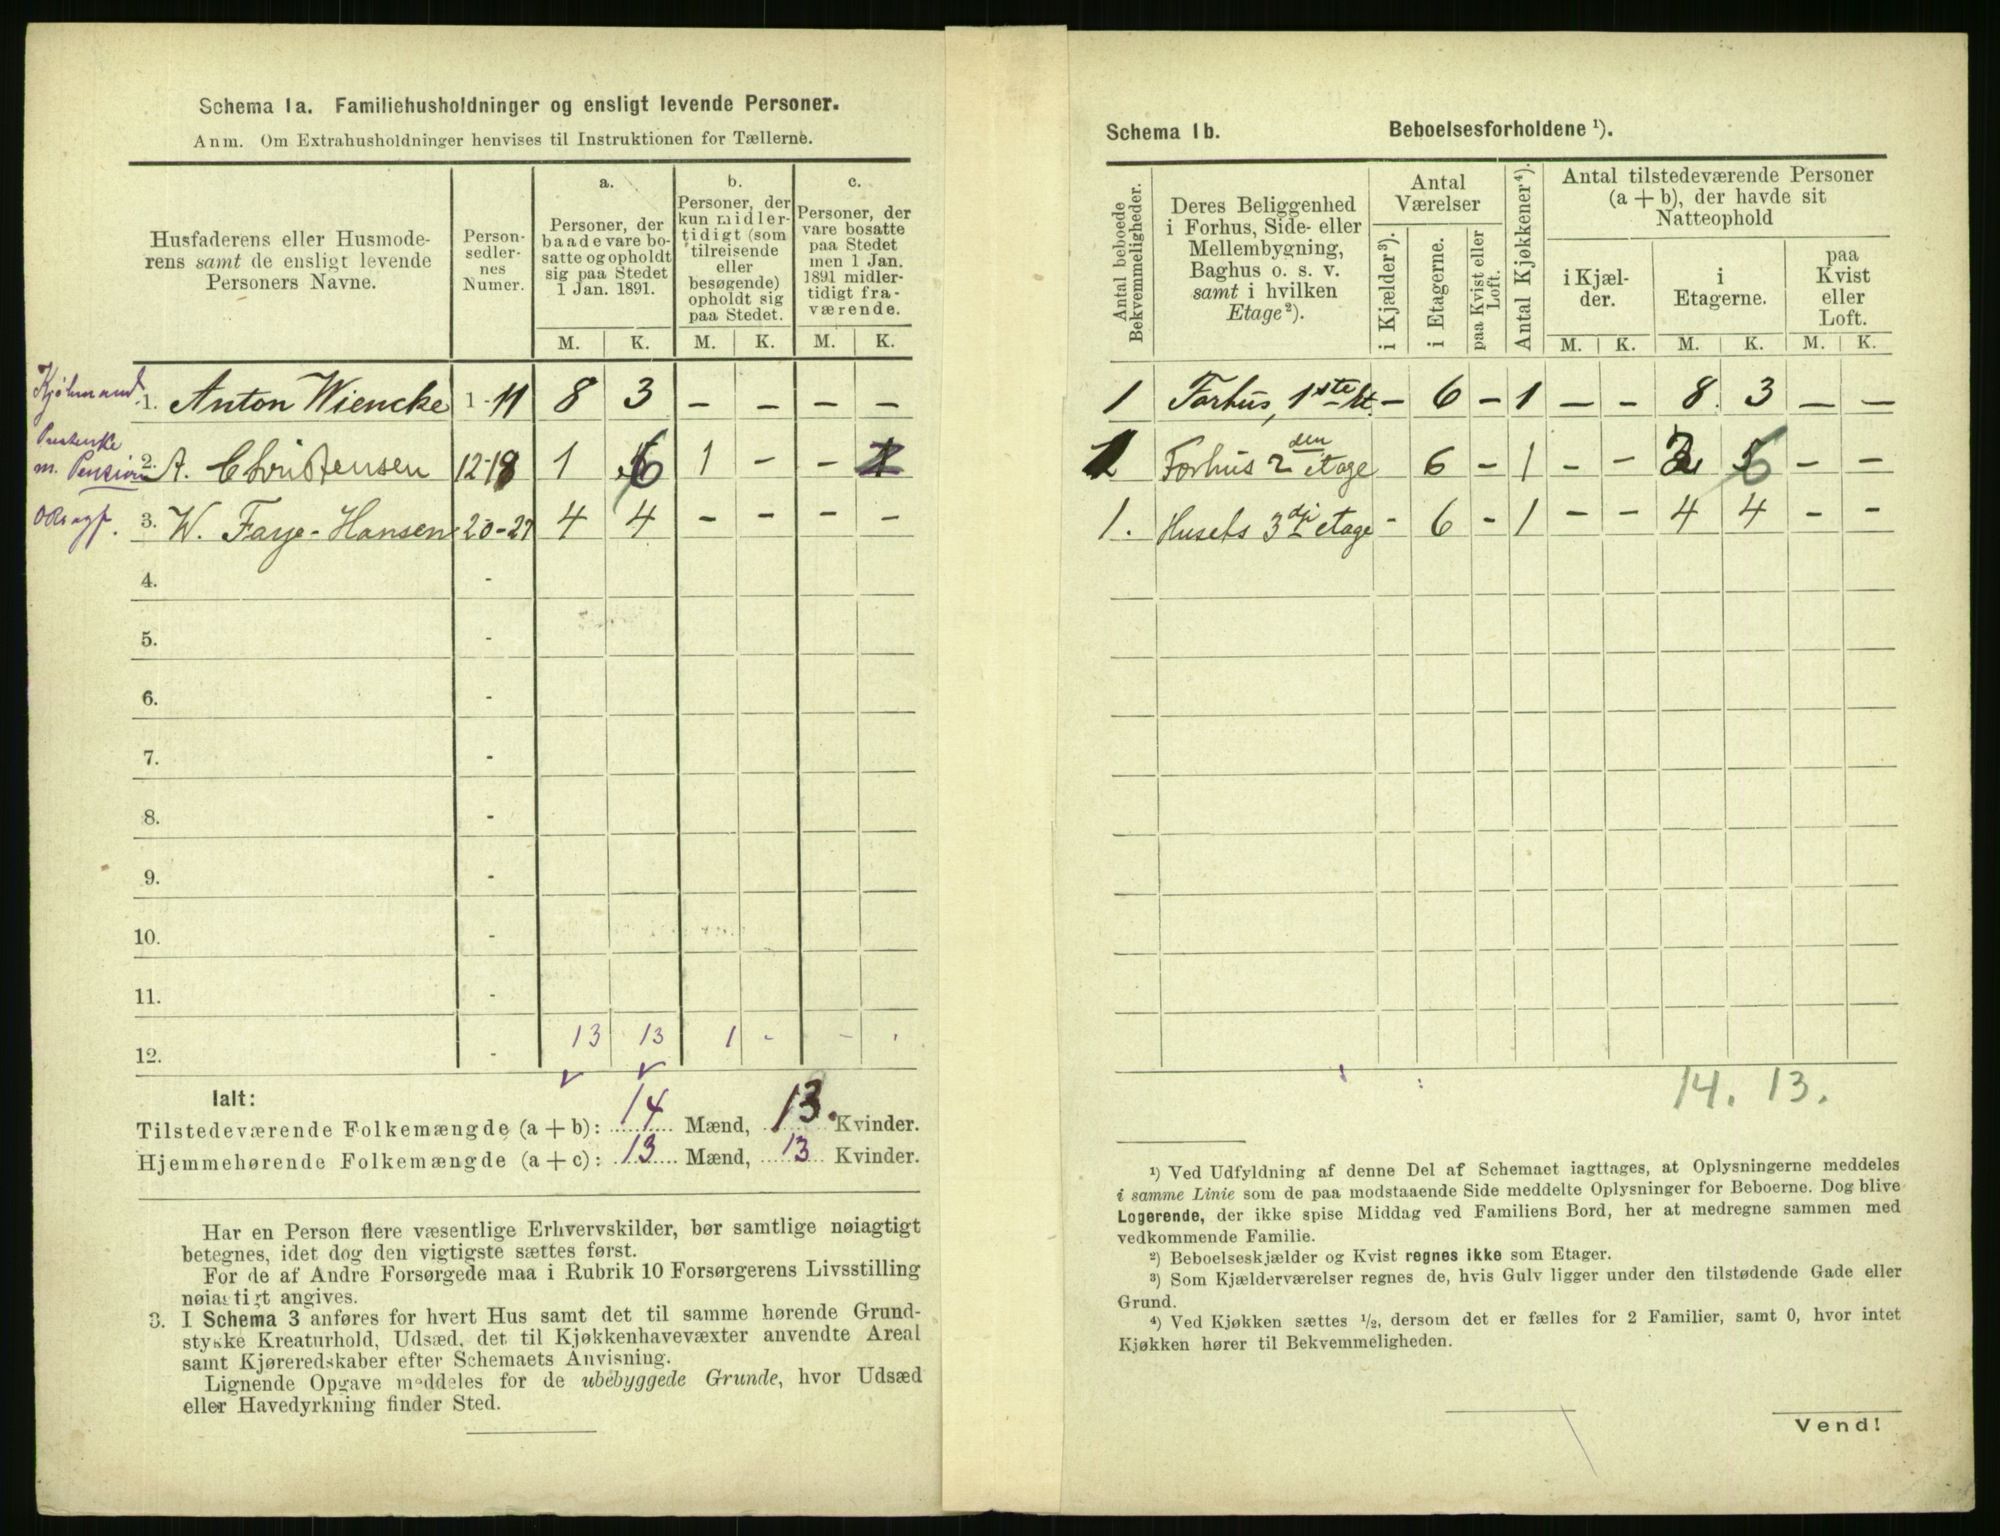 Schema 1a. Familiehusholdninger og ensligt levende Personer.
Anm. Om Extrahusholdninger henvises til Instruktionen for Tællerne.
Husfaderens eller Husmode-
rens samt de ensligt levende
Personers Navne.
Person-
sedler-
nes
Numer.
a.
Personer, der
baade vare bo-
satte og opholdt
sig paa Stedet
1 Jan. 1891.
b.
Personer, der
kun midler-
tidigt (som
tilreisende
eller
besøgende)
opholdt sig
paa Stedet.
c.
Personer, der
vare bosatte
paa Stedet
men 1 Jan.
1891 midler-
tidigt fra-
værende.
M. K. M. K. M. K.
Kjøbmand 1. Anton Wiencke 1-11 8 3 – – – –
m. Pension 2. A. Christensen 12-18 1 6 1 – – 1
3. W. Faye-Hansen 20-27 4 4 – – – –
4. -
5. -
6. -
7. -
8. -
9. -
10. -
11. -
12. - 13 13 1 - - -
Ialt:
Tilstedeværende Folkemængde (a + b): 14 Mænd, 13. Kvinder.
Hjemmehørende Folkemængde (a + c): 13 Mænd, 13 Kvinder.
Har en Person flere væsentlige Erhvervskilder, bør samtlige nøiagtigt
betegnes, idet dog den vigtigste sættes først.
For de af Andre Forsørgede maa i Rubrik 10 Forsørgerens Livsstilling
nøiagtigt angives.
3. I Schema 3 anføres for hvert Hus samt det til samme hørende Grund-
stykke Kreaturhold, Udsæd, det til Kjøkkenhavevæxter anvendte Areal
samt Kjøreredskaber efter Schemaets Anvisning.
Lignende Opgave meddeles for de ubebyggede Grunde, hvor Udsæd
eller Havedyrkning finder Sted.
Schema 1b. Beboelsesforholdene ¹).
Antal beboede
Bekvemmeligheder.
Deres Beliggenhed
i Forhus, Side- eller
Mellembygning,
Baghus o. s. v.
samt i hvilken
Etage²).
Antal
Værelser
i Kjælder³).
i Etagerne.
paa Kvist eller
Loft.
Antal Kjøkkener⁴).
Antal tilstedeværende Personer
(a + b), der havde sit
Natteophold
i Kjæl-
der.
i
Etagerne.
paa
Kvist
eller
Loft.
M. K. M. K. M. K.
1 Forhus, 1ste Et. – 6 – 1 – – 8. 3 – –
1 Forhus 2den etage 6 – 1 – – 2 6 – –
1. Husets 3die etage - 6 – 1 – – 4 4 – –
14. 13.
¹) Ved Udfyldning af denne Del af Schemaet iagttages, at Oplysningerne meddeles
i samme Linie som de paa modstaaende Side meddelte Oplysninger for Beboerne. Dog blive
Logerende, der ikke spise Middag ved Familiens Bord, her at medregne sammen med
vedkommende Familie.
²) Beboelseskjælder og Kvist regnes ikke som Etager.
³) Som Kjælderværelser regnes de, hvis Gulv ligger under den tilstødende Gade eller
Grund.
⁴) Ved Kjøkken sættes ½, dersom det er fælles for 2 Familier, samt 0, hvor intet
Kjøkken hører til Bekvemmeligheden.
Vend!